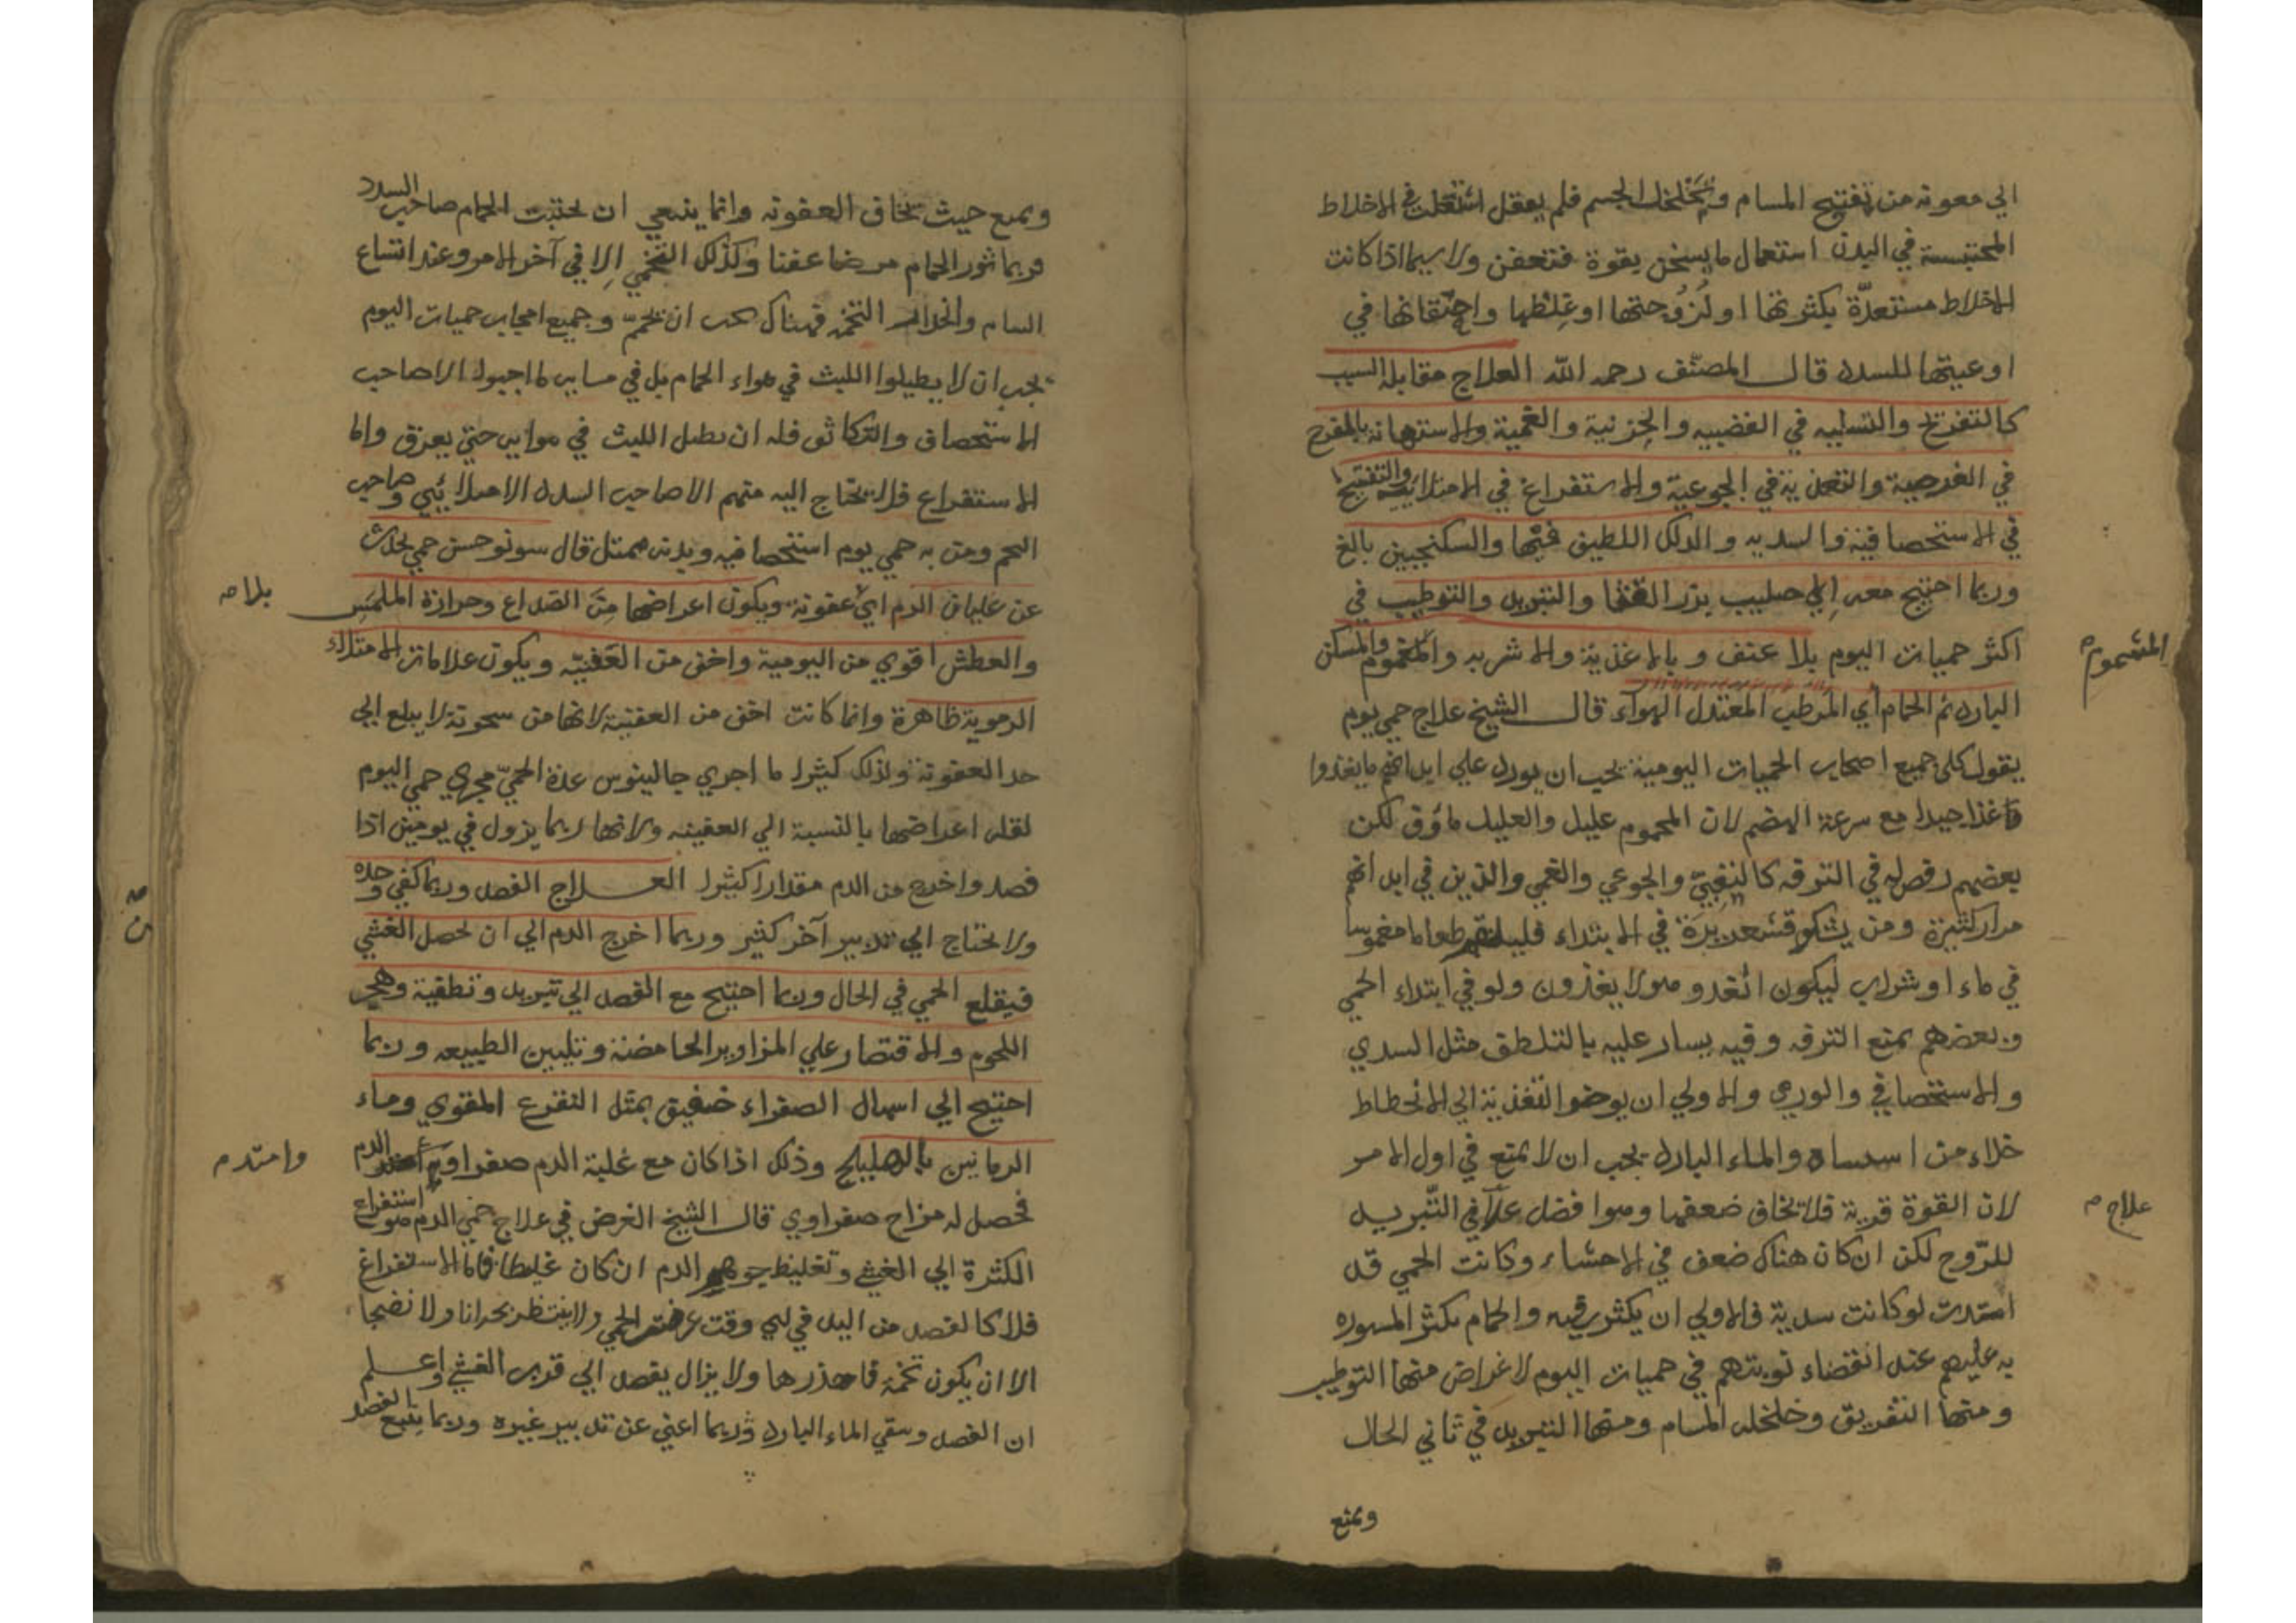 الي معونة من تفتيح المسام و الجسم فلم يعقل الاخلاط
المحتبسة في البدن استعمال ما يسخن بقوة فتعفن ولا سيما اذا كانت
الاخلاط مستعدّة بكثرتها او لزُوجتها او غِلظها واحتقانها في
اوعيتها للسدد قال المصنّف رحمه الله العلاج مقابلة السبب
كالتفريح والتسليه في الغضبيه والحزنية والغمية والاستهانة بالمفرح
في الفرحية والتغذية في الجوعية والاستفراغ في الامتلائيه والتفتيح
في الاستحصافية والسديه والدلك اللطيف فيها والسكنجبين بالغ
وربما احتيج معه إلي حليب بزر القثا والتبريد والترطيب في
اكثر حميات اليوم بلا عنف وبالاغذية والاشربه والمشموم والمسكن
البارد ثم الحمام أي المرطب المعتدل الهواء قال الشيخ علاج حمي يوم
يقول كلي جميع اصحاب الحميات اليومية يجب ان يورد علي ابدانهم ما يغذوا
غذا جيدا مع سرعة الهضم لان المحموم عليل والعليل مأوق لكن
بعضهم رخص له في الترفه كالتعبيّ والجوعي والغمي والذين في ابدانهم
مرار كثيرة ومن يشكو قشعريرة في الابتداء طعاما مغموسا
في ماء او شراب ليكون انفد وهولا يغذون ولو في ابتداء الحمي
وبعضهم يمنع الترفه وفيه يسار عليه بالتلطف مثل السدي
والاستحصافي والورمي والاولي ان يوخر التغذية الي الانحطاط
خلاء من والماء البارد يجب ان لا يمنع في اول الامر
لان القوة قوية فلا تخاف ضعفها وهوا فضل علاج في التّبريد
للرّوح لكن ان كان هناك ضعف في الاحشاء وكانت الحمي قد
امتدت لو كانت سدية فالاولي ان يكثر رقيه والحمام يكثر المشوره
به عليهم عند انقضاء نوبتهم في حميات اليوم لاغراض منها الترطيب
ومنها التعريق وخلخلة المسام ومنها التبريد في ثاني الحال
ويمنع
المشموم
علاج م
ويمنع حيث تخاف العفونه وانما ينبغي ان يجتنب الحمام صاحب السدد
فربما ثور الحمام مرضا عفنا وكذلك التخمي إلا في آخر الامر وعند اتساع
المسام وانحدار التخمة فهناك يجب ان تحمّ وجميع اصحاب حميات اليوم
يجب ان لا يطيلوا اللبث في هواء الحمام بل في ما احبوا الا صاحب
الاستحصاف والتكاثف فله ان يطيل اللبث في هوائه حتي يعرق واما
الاستفراغ فلا يحتاج اليه منهم الا صاحب السدد الامتلائي وصاحب
التخم ومن به حمي يوم استحصافيه وبدنه ممتل قال سونوخس حمي تحدث
عن غليان الدم اي عفونة ويكون اعراضها مِنَ الصداع وحرارة الملمَس
والعطش اقوي من اليومية واخف من العَفنيّه ويكون علامات الامتلاء
الدموية ظاهرة وانما كانت اخف من العفنية لانها من سخونة لا يبلغ الي
حد العفونة ولذلك كثيرا ما اجري جالينوس هذة الحميّ مجري حمي اليوم
لقلة اعراضها بالنسبة الي العفنيه ولانها ربما يزول في يومين اذا
فصد واخرج من الدم مقدارا كثيرا العلاج الفصد وربما كفي وحده
ولا يحتاج الي تدبير آخر كثير وربما اخرج الدم الي ان يحصل الغشي
فيقلع الحمي في الحال وربما احتيج مع الفصد الي تبريد وتطفية وهجر
اللحوم والاقتصار علي المزاوير الحامضة وتليين الطبيعه وربما
احتيج الي اسهال الصفراء خفيف بمثل النقوع المقوي وماء
الرمانين بالهليلج وذلك اذا كان مع غلبة الدم صفرا او الدم
فحصل له مزاج صفراوي قال الشيخ الغرض في علاج حمي الدم هو استفراغ
الكثرة الي الغشي وتغليظ جوهر الدم ان كان غليظا فاما الاستفراغ
فلا كالفصد من اليد في اي وقت عرضت الحمي ولا ينتظر بحرانا ولا نضجا
الا ان يكون تخمة فاحذرها ولا يزال يفصد الي قرب الغشي واعلم
ان الفصد وسقي الماء البارد وربما اغني عن تدبير غيره وربما يتبع الفصد
بلا م
وامتد م